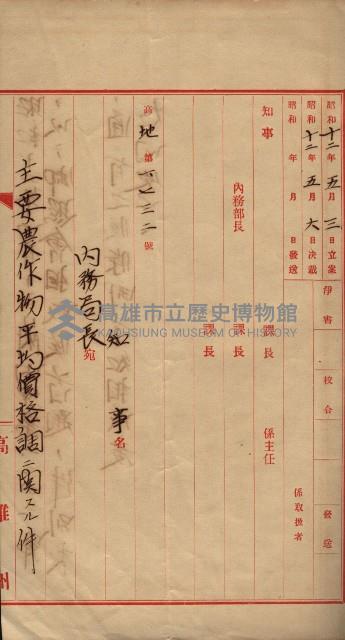 昭和十二年五月三日立案
昭和十二年五月六日決裁
昭和 年 月 日發送
淨書
校合
發送
係取扱者
知事
內務部長
課長
課長
課長
係主任
高地第 號
知事名
內務局長宛
主要農作物平均價格調ニ関スル件
高雄州
高雄市立歷史博物館
KAOHSIUNG MUSEUM OF HISTORY